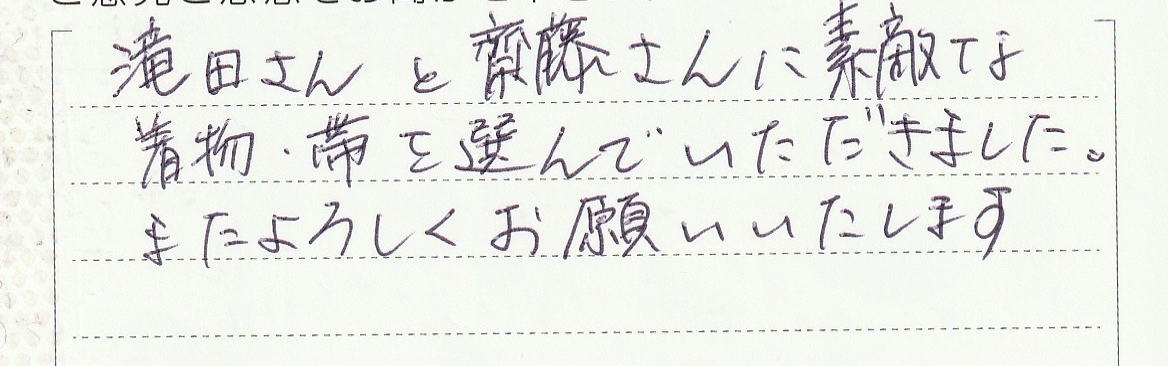 滝田さんと齋藤さんに素敵な
着物・帯を選んでいただきました。
またよろしくお願いいたします